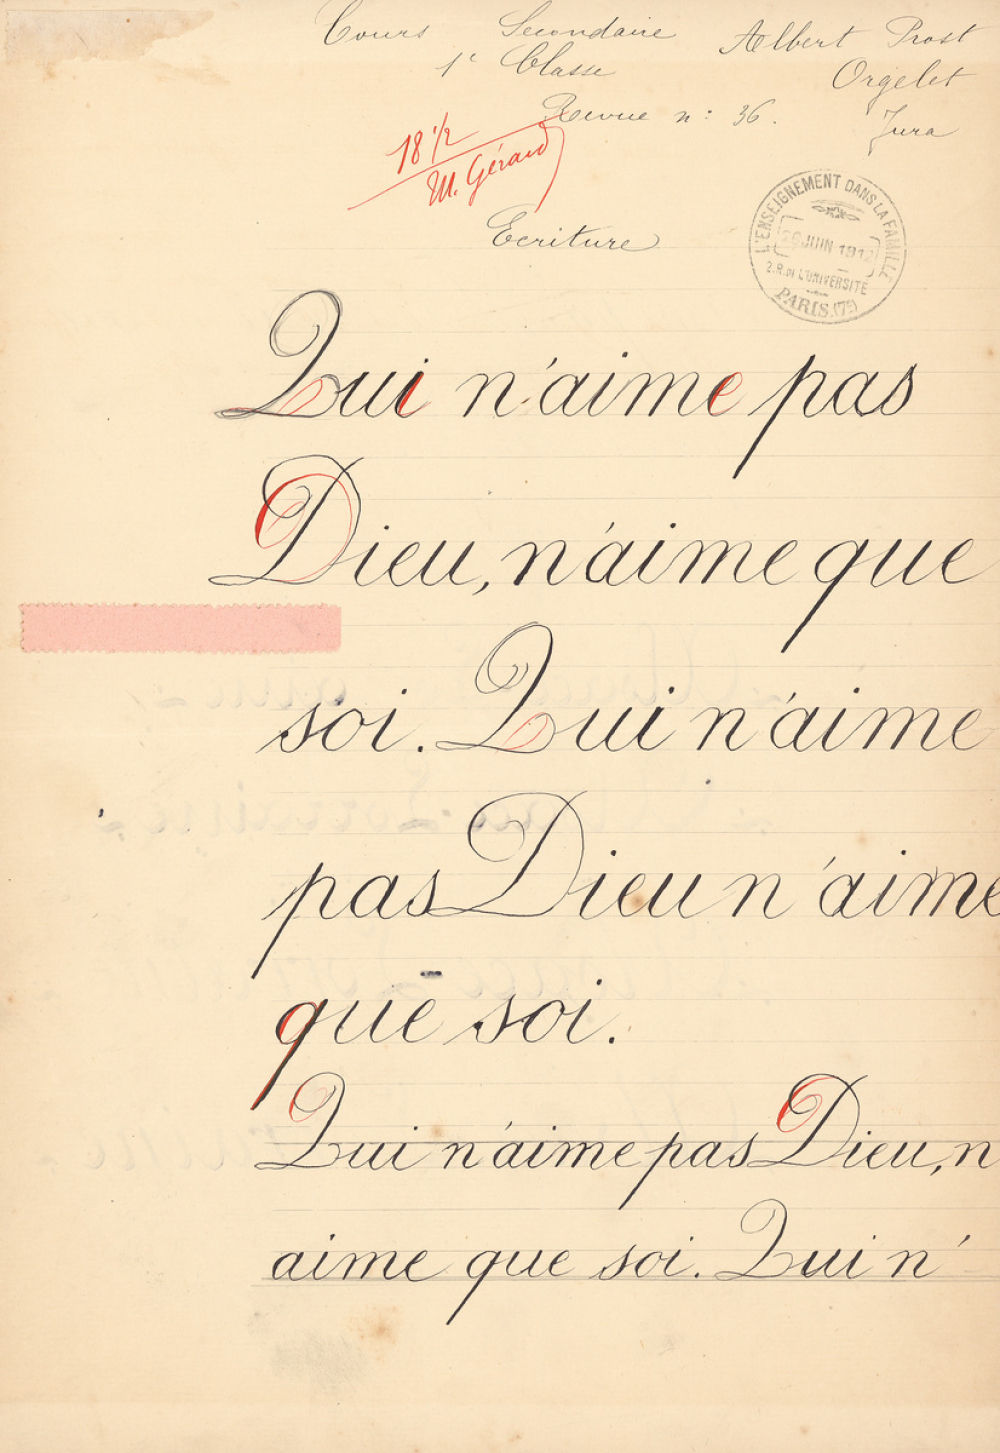 Cours Secondaire Albert Prost
1e Classe Orgelet
Revue n: 36. Jura
18 1/2
M. Gérard
L'ENSEIGNEMENT DANS LA FAMILLE
20 JUIN 1912
2.R. DE L'UNIVERSITÉ
PARIS (7e)
Ecriture
Qui n'aime pas
Dieu, n'aime que
soi. Qui n'aime
pas Dieu n'aime
que soi.
Qui n'aime pas Dieu, n
aime que soi. Qui n'